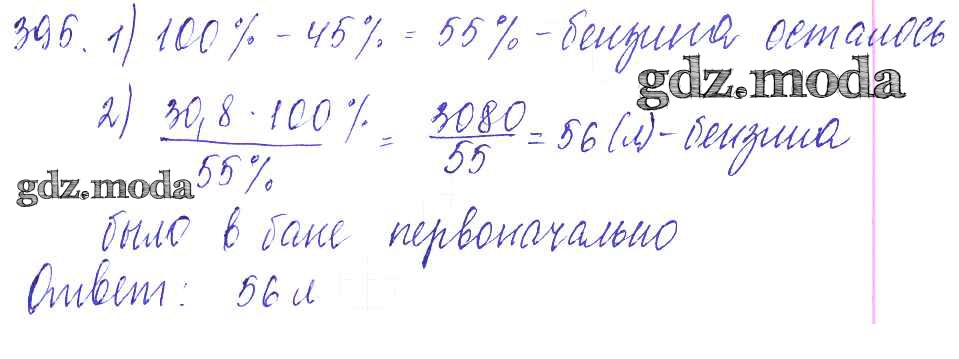 395. 1) 100% - 45% = 55% - бензина осталось
gdz.moda
2) 30,8 · 100% / 55% = 3080 / 55 = 56 (л) - бензина
gdz.moda
было в баке первоначально
Ответ: 56 л